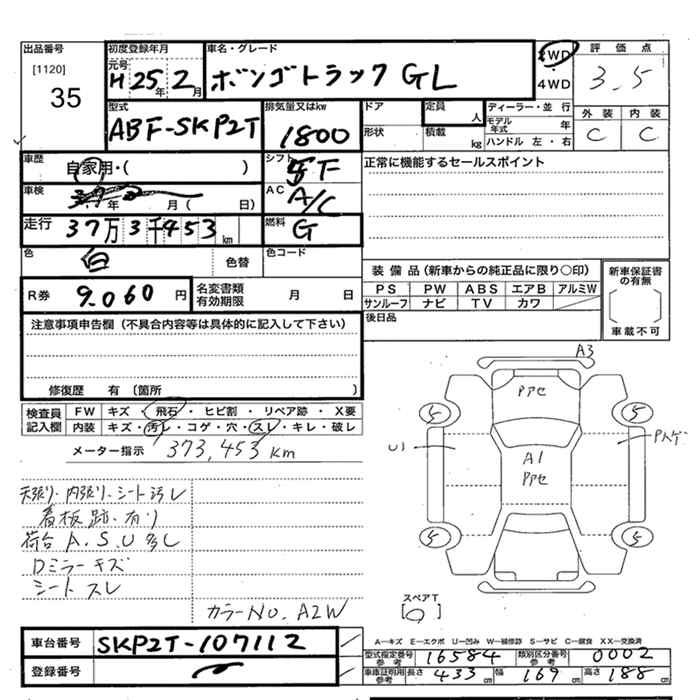 出品番号
[1120]
35
初度登録年月
元号
H 25年 2月
車名・グレード
ボンゴトラック GL
2WD
・
4WD
評価点
3.5
外装 内装
C C
型式
ABF-SKP2T
排気量又はkw
1800
ドア
形状
定員
人
積載
kg
ディーラー・並行
モデル年式 年
ハンドル 左・右
車歴
自家用・( )
シフト
5F
正常に機能するセールスポイント
車検
年 月( 日)
AC
A/C
走行
37万3千453km
燃料
G
色
白
色替
色コード
R券
9.060円
名変書類有効期限 月 日
装備品(新車からの純正品に限り○印)
PS PW ABS エアB アルミW
サンルーフ ナビ TV カワ
新車保証書の有無
車載不可
後日品
注意事項申告欄(不具合内容等は具体的に記入して下さい)
修復歴 有(箇所 )
検査員記入欄
FW キズ・飛石・ヒビ割・リペア跡・X要
内装 キズ・汚レ・コゲ・穴・スレ・キレ・破レ
メーター指示 373,453 km
天張り・内張り・シート汚レ
看板跡・有り
荷台 A.S.U 多し
Dミラーキズ
シートスレ
カラーNO. A2W
A3
Pアセ
5 5
U1
A1
Pアセ
5 5
スペアT
車台番号 SKP2T-107112
登録番号
A—キズ E—エクボ U—凹み W—補修跡 S—サビ C—腐食 XX—交換済
型式指定番号参考 16584 類別区分番号参考 0002
車庫証明用参考 長さ 433cm 幅 169cm 高さ 188cm